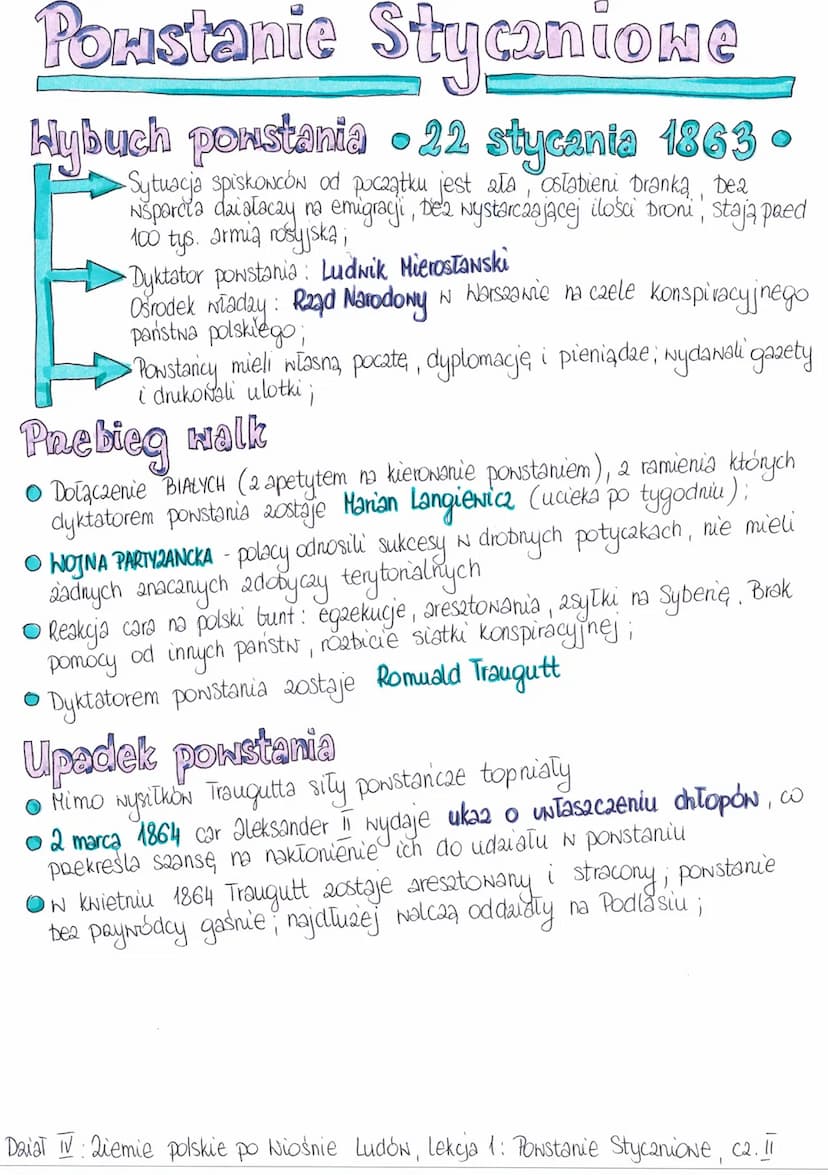 Powstanie Styczniowe
Wybuch powstania • 22 stycznia 1863 •
Sytuacja spiskowców od początku jest zła, osłabieni branką, bez
wsparcia działaczy na emigracji, bez wystarczającej ilości broni; stają przed
100 tys. armią rosyjską;
Dyktator powstania: Ludwik Mierosławski
Ośrodek władzy: Rząd Narodowy w Warszawie na czele konspiracyjnego
państwa polskiego;
Powstańcy mieli własną pocztę, dyplomację i pieniądze; wydawali gazety
i drukowali ulotki;
Przebieg walk
• Dołączenie BIAŁYCH (z apetytem na kierowanie powstaniem), z ramienia których
dyktatorem powstania zostaje Marian Langiewicz (ucieka po tygodniu);
• WOJNA PARTYZANCKA - polacy odnosili sukcesy w drobnych potyczkach, nie mieli
żadnych znacznych zdobyczy terytorialnych
• Reakcja cara na polski bunt: egzekucje, aresztowania, zsyłki na Syberię. Brak
pomocy od innych państw, rozbicie siatki konspiracyjnej;
• Dyktatorem powstania zostaje Romuald Traugutt
Upadek powstania
• Mimo wysiłków Traugutta siły powstańcze topniały
• 2 marca 1864 car Aleksander II wydaje ukaz o uwłaszczeniu chłopów, co
przekreśla szansę na nakłonienie ich do udziału w powstaniu
• W kwietniu 1864 Traugutt zostaje aresztowany i stracony; powstanie
bez przywódcy gaśnie; najdłużej walczą oddziały na Podlasiu;
Dział IV: Ziemie polskie po Wiośnie Ludów, lekcja 1: Powstanie Styczniowe, cz. II